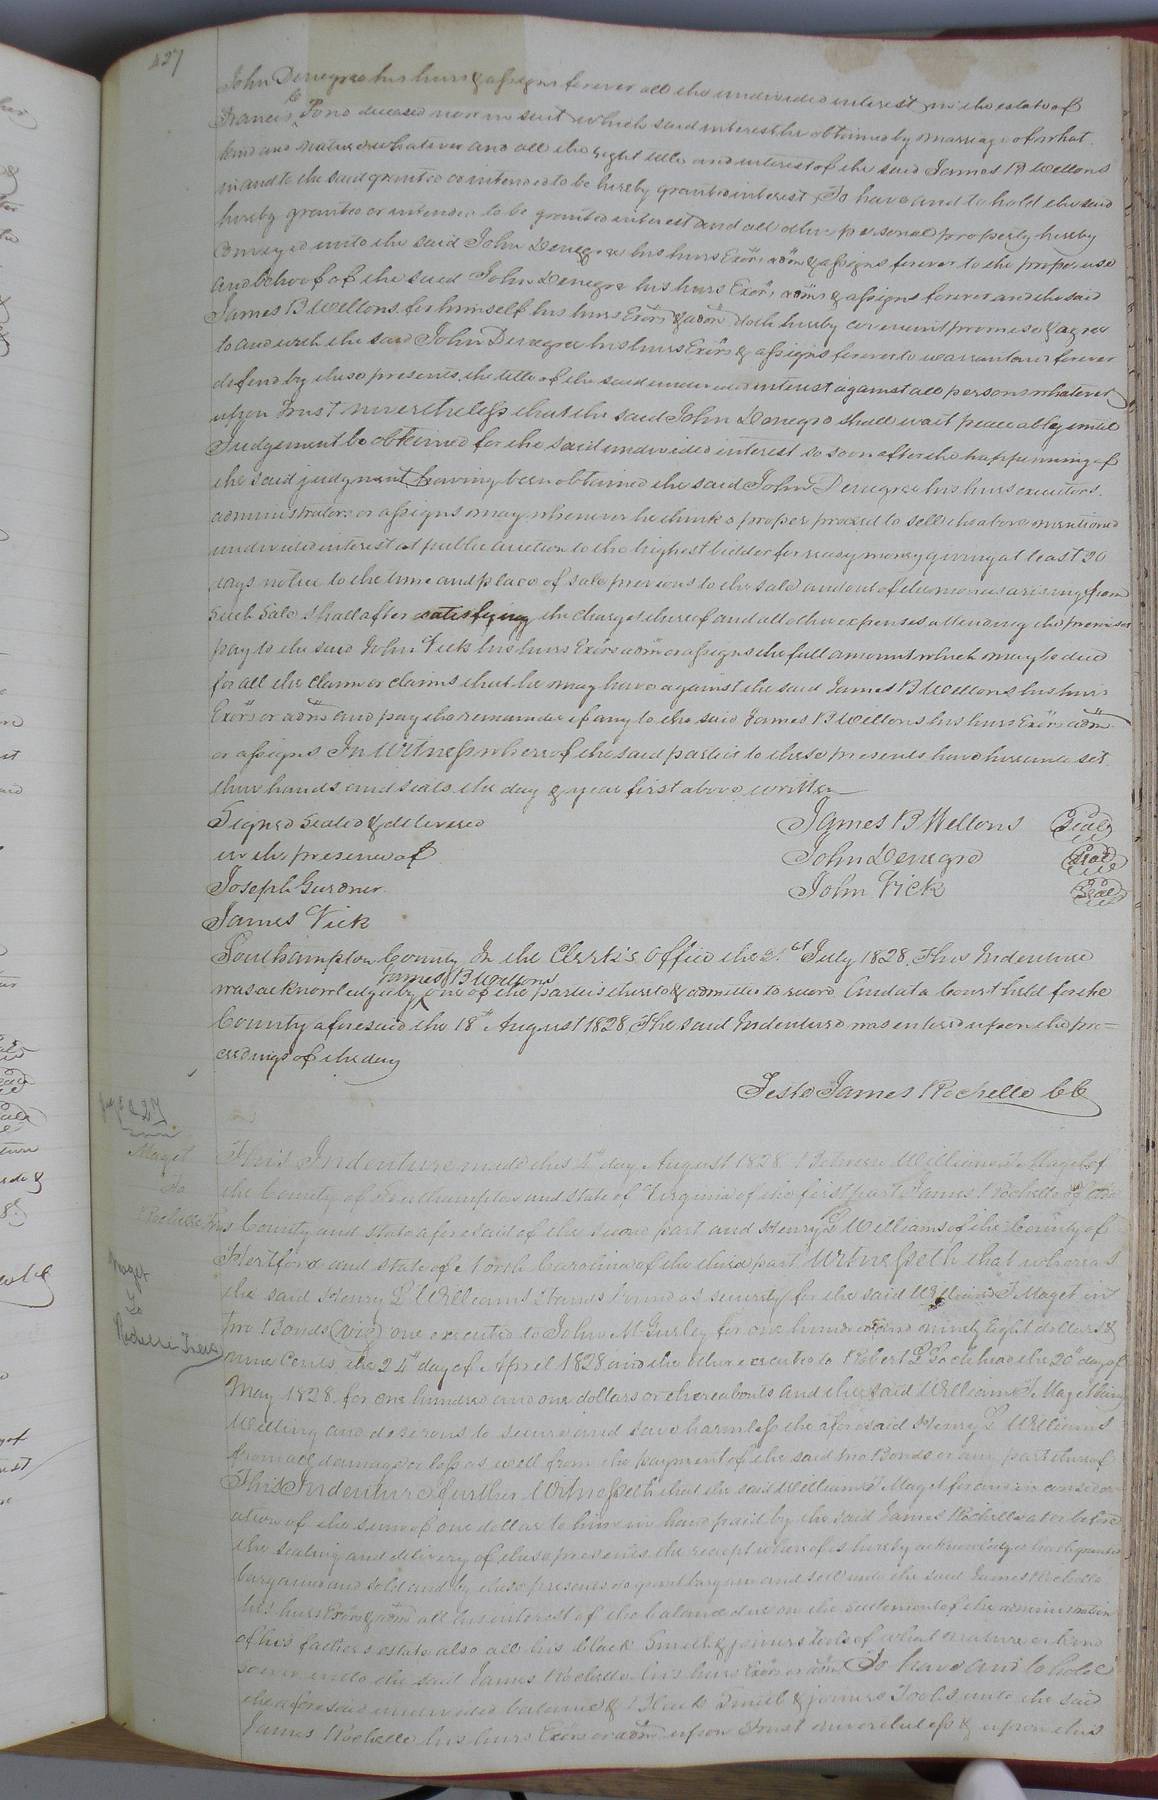 427
John Denegree his heirs & assigns forever all the undivided interest in the estate of
Francis Pond deceased now in suit which said interest he obtained by marriage of what
kind and nature whatever and all the right title and interest of the said James B Wellons
in and to the said granted or intended to be hereby granted interest, To have and to hold the said
hereby granted or intended to be granted interest and all other personal property hereby
conveyed unto the said John Denegre his heirs Exors adm & assigns forever to the proper use
and behoof of the said John Denegre his heirs Exors adms & assigns forever and the said
James B Wellons for himself his heirs Exors & adm doth hereby covenant promise & agree
to and with the said John Denegree his heirs Exors & assigns forever to warrant and forever
defend by these presents the title of the said undivided interest against all persons whatever
upon Trust nevertheless that the said John Denegre shall wait peaceably until
Judgement be obtained for the said undivided interest so soon after the happening of
the said judgment having been obtained the said John Denegree his heirs executors
administrators or assigns may whenever he thinks proper proceed to sell the above mentioned
undivided interest at public auction to the highest bidder for ready money giving at least 20
days notice to the time and place of sale previous to the sale and out of the monies arising from
such sale shall after satisfying the charges thereof and all other expenses attending the premises
pay to the said John Vick his heirs Exors adm or assigns the full amount which may be due
for all the claim or claims that he may have against the said James B Wellons his heirs
Exors or adms and pay the remainder if any to the said James B Wellons his heirs Exors adm
or assigns In Witness whereof the said parties to these presents have hereunto set
their hands and seals the day & year first above written
Signed Sealed & delivered James B Wellons Seal
in the presence of John Denegre Seal
Joseph Gurdner John Vick Seal
James Vick
Southampton County In the Clerk's Office the 21st July 1828. This Indenture
James B Wellons
was acknowledged by one of the parties thereto & admitted to record And at a Court held for the
County aforesaid the 18th August 1828 The said Indenture was entered upon the pro=
ceedings of the day
Teste James Rochelle CC
Maget
To
Rochelle Trus
This Indenture made this 4th day August 1828 Between William T Maget of
the County of Southampton and state of Virginia of the first part James Rochelle of the
County and state aforesaid of the second part and Henry L Williams of the County of
Hertford and state of North Carolina of the third part Witnesseth that whereas
Maget
To
Rochelle Trus
the said Henry L Williams stands bound as security for the said William T Maget in
two Bonds (viz) one executed to John M Gurley for one hundred and ninety eight dollars &
nine Cents the 24th day of April 1828 and the other executed to Robert L Lockhead the 20th day of
May 1828 for one hundred and one dollars or thereabouts and the said William T Maget being
willing and desirous to secure and save harmless the aforesaid Henry L Williams
from all damage or loss as well from the payment of the said two Bonds or any part thereof
This Indenture further Witnesseth that the said William T Maget for and in consider
ation of the sum of one dollar to him in hand paid by the said James Rochelle at or before
the sealing and delivery of these presents the receipt whereof is hereby acknowledged hath granted
bargained and sold and by these presents do grant bargain and sell unto the said James Rochelle
his heirs Exors & adm all his interest of the balance due on the settlement of the administration
of his father's estate also all his black Smith & joiners tools of what nature or kind
soever unto the said James Rochelle his heirs Exors or adm To have and to hold
the aforesaid undivided balance & Black Smith & joiners Tools unto the said
James Rochelle his heirs Exors or adm upon Trust nevertheless & upon this